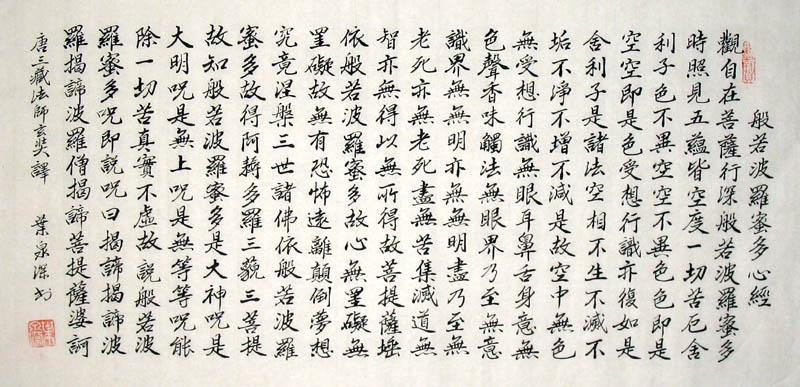 般若波羅蜜多心經
觀自在菩薩行深般若波羅蜜多
時照見五蘊皆空度一切苦厄舍
利子色不異空空不異色色即是
空空即是色受想行識亦復如是
舍利子是諸法空相不生不滅不
垢不淨不增不減是故空中無色
無受想行識無眼耳鼻舌身意無
色聲香味觸法無眼界乃至無意
識界無無明亦無無明盡乃至無
老死亦無老死盡無苦集滅道無
智亦無得以無所得故菩提薩埵
依般若波羅蜜多故心無罣礙無
罣礙故無有恐怖遠離顛倒夢想
究竟涅槃三世諸佛依般若波羅
蜜多故得阿耨多羅三藐三菩提
故知般若波羅蜜多是大神呪是
大明呪是無上呪是無等等呪能
除一切苦真實不虛故說般若波
羅蜜多呪即說呪曰揭諦揭諦波
羅揭諦波羅僧揭諦菩提薩婆訶
唐三藏法師玄奘譯 葉泉深书